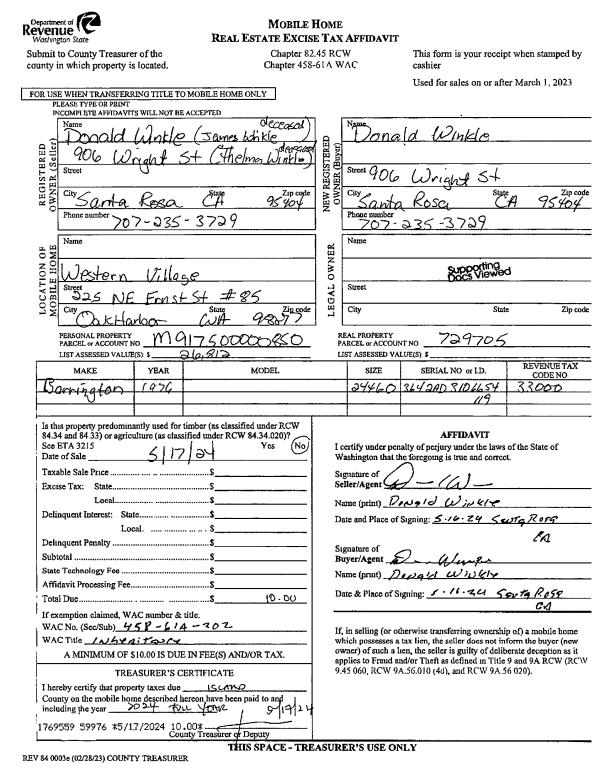 Department of
Revenue
Washington State
Submit to County Treasurer of the
county in which property is located.
MOBILE HOME
REAL ESTATE EXCISE TAX AFFIDAVIT
Chapter 82.45 RCW
Chapter 458-61A WAC
This form is your receipt when stamped by
cashier
Used for sales on or after March 1, 2023
FOR USE WHEN TRANSFERRING TITLE TO MOBILE HOME ONLY
PLEASE TYPE OR PRINT
INCOMPLETE AFFIDAVITS WILL NOT BE ACCEPTED
REGISTERED OWNER (Seller)
Name
deceased)
Donald Winkle (James Winkle
906 Wright St (Thelma Winkle) deceased
Street
City State Zip code
Santa Rosa CA 95404
Phone number
707-235-3729
NEW REGISTERED OWNER (Buyer)
Name
Donald Winkle
Street 906 Wright St
City State Zip code
Santa Rosa CA 95404
Phone number
707-235-3729
LOCATION OF MOBILE HOME
Name
Western Village
Street
225 NE Ernst St #85
City State Zip code
Oak Harbor WA 98277
LEGAL OWNER
Name
Supporting
Docs Viewed
Street
City State Zip code
PERSONAL PROPERTY
PARCEL or ACCOUNT NO M917500000850
LIST ASSESSED VALUE(S) $ 26,812
REAL PROPERTY
PARCEL or ACCOUNT NO. 729705
LIST ASSESSED VALUE(S) $
MAKE YEAR MODEL SIZE SERIAL NO or I.D. REVENUE TAX CODE NO
Barrington 1976 24460 33000
119
Is this property predominantly used for timber (as classified under RCW
84.34 and 84.33) or agriculture (as classified under RCW 84.34.020)?
See ETA 3215 Yes No
Date of Sale 5/17/24
Taxable Sale Price $
Excise Tax: State $
Local $
Delinquent Interest: State $
Local $
Delinquent Penalty $
Subtotal $
State Technology Fee $
Affidavit Processing Fee $
Total Due $ 10.00
If exemption claimed, WAC number & title.
WAC No. (Sec/Sub) 458-61A-202
WAC Title Inheritance
A MINIMUM OF $10.00 IS DUE IN FEE(S) AND/OR TAX.
TREASURER'S CERTIFICATE
I hereby certify that property taxes due ISLAND
County on the mobile home described hereon have been paid to and
including the year 2024 Full Year 5/17/24
1769559 59976 *5/17/2024 10.00*
County Treasurer or Deputy
AFFIDAVIT
I certify under penalty of perjury under the laws of the State of
Washington that the foregoing is true and correct.
Signature of
Seller/Agent
Name (print) Donald Winkle
Date and Place of Signing: 5-16-24 Santa Rosa
CA
Signature of
Buyer/Agent
Name (print) Donald Winkle
Date & Place of Signing: 5-16-24 Santa Rosa
CA
If, in selling (or otherwise transferring ownership of) a mobile home
which possesses a tax lien, the seller does not inform the buyer (new
owner) of such a lien, the seller is guilty of deliberate deception as it
applies to Fraud and/or Theft as defined in Title 9 and 9A RCW (RCW
9.45 060, RCW 9A.56.010 (4d), and RCW 9A.56 020).
THIS SPACE - TREASURER'S USE ONLY
REV 84 0003e (02/28/23) COUNTY TREASURER